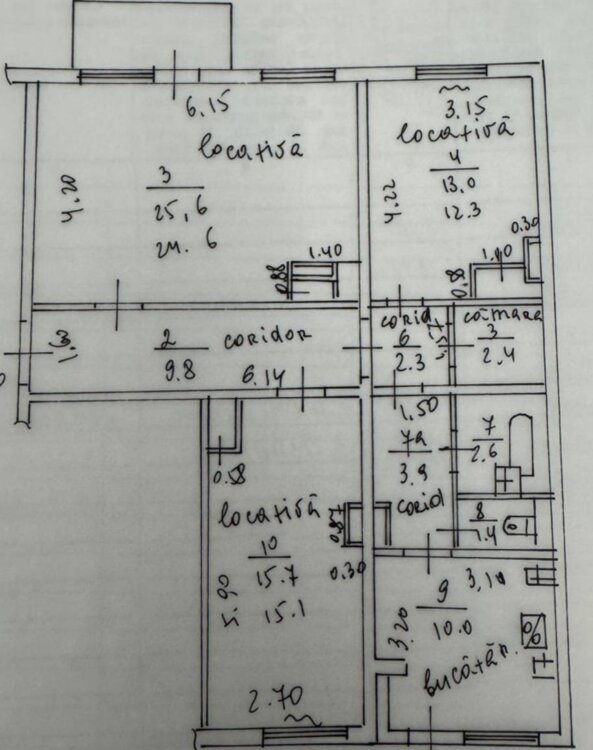 6.15
locativă
3
25,6
24.6
4.20
1.40
0.88
3.15
locativă
4
13.0
12.3
4.22
0.30
1.40
0.88
2
9.8
coridor
6.14
corid
6
2.3
cămara
3
2.4
1.50
7a
3.9
corid
7
2.6
8
1.4
0.58
locativă
10
15.7
15.1
0.30
2.70
9
10.0
3.10
3.20
bucătăr.